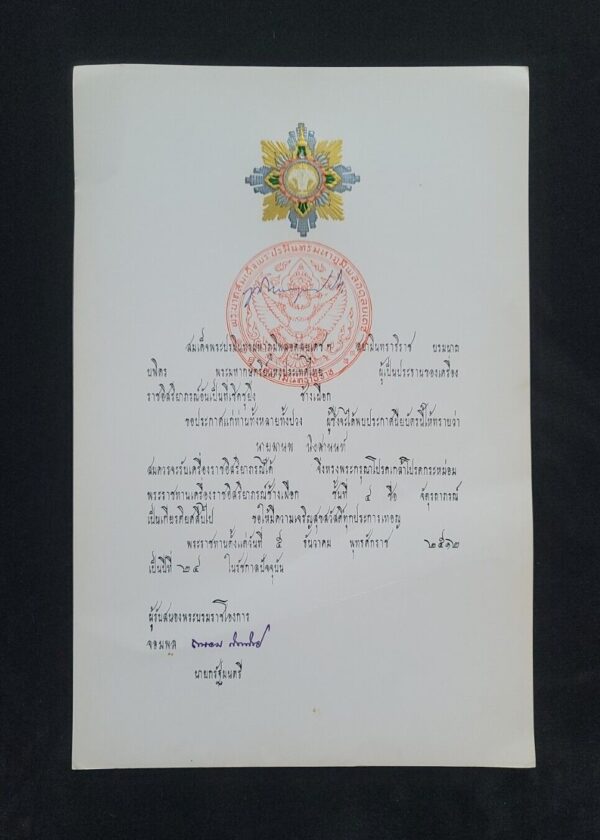 สมเด็จพระปรมินทรมหาภูมิพลอดุลยเดช ฯ สยามินทราธิราช บรมนาถ
บพิตร พระมหากษัตริย์แห่งประเทศไทย ผู้เป็นประธานของเครื่อง
ราชอิสริยาภรณ์อันเป็นที่เชิดชูยิ่ง ช้างเผือก
ขอประกาศแก่ท่านทั้งหลายทั้งปวง ผู้ซึ่งจะได้พบประกาศนียบัตรนี้ให้ทราบว่า
นายมานพ
สมควรจะรับเครื่องราชอิสริยาภรณ์ได้ จึงทรงพระกรุณาโปรดเกล้าโปรดกระหม่อม
พระราชทานเครื่องราชอิสริยาภรณ์ช้างเผือก ชั้นที่ ๔ ชื่อ จัตุรถาภรณ์
เป็นเกียรติยศสืบไป ขอให้มีความเจริญสุขสวัสดิ์ทุกประการเทอญ
พระราชทานตั้งแต่วันที่ ๕ ธันวาคม พุทธศักราช ๒๕๑๒
เป็นปีที่ ๒๔ ในรัชกาลปัจจุบัน
ผู้รับสนองพระบรมราชโองการ
จอมพล
นายกรัฐมนตรี